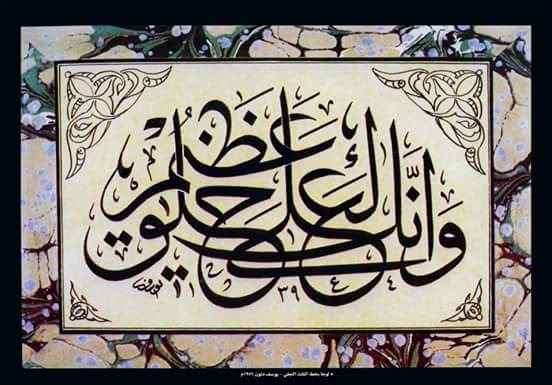 وانك لعلى خلق عظيم
لوحة بخط الثلث الجلي - يوسف ذنون